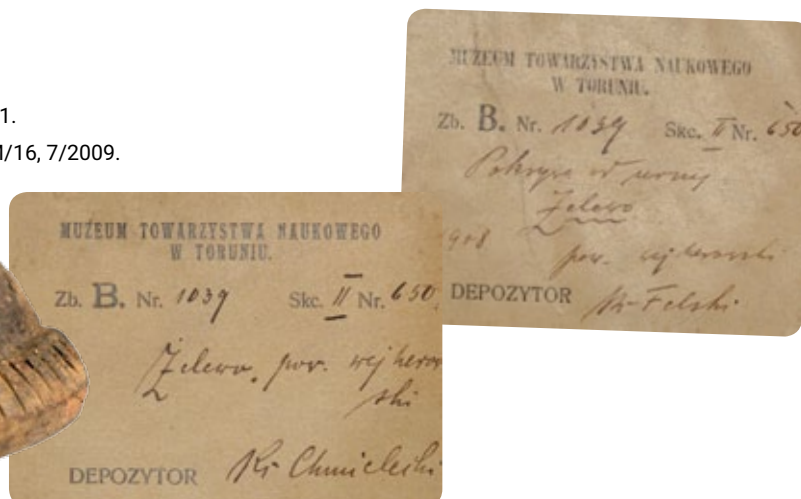 1.
/16, 7/2009.
MUZEUM TOWARZYSTWA NAUKOWEGO
W TORUNIU.
Zb. B. Nr. 1039 Skc. II Nr. 650
Pokrywa od urny
Żelewo
1908
pow. wejherowski
DEPOZYTOR Ks Felski
MUZEUM TOWARZYSTWA NAUKOWEGO
W TORUNIU.
Zb. B. Nr. 1039 Skc. II Nr. 650.
Żelewo, pow. wejherow
ski
DEPOZYTOR Ks Chmielecki